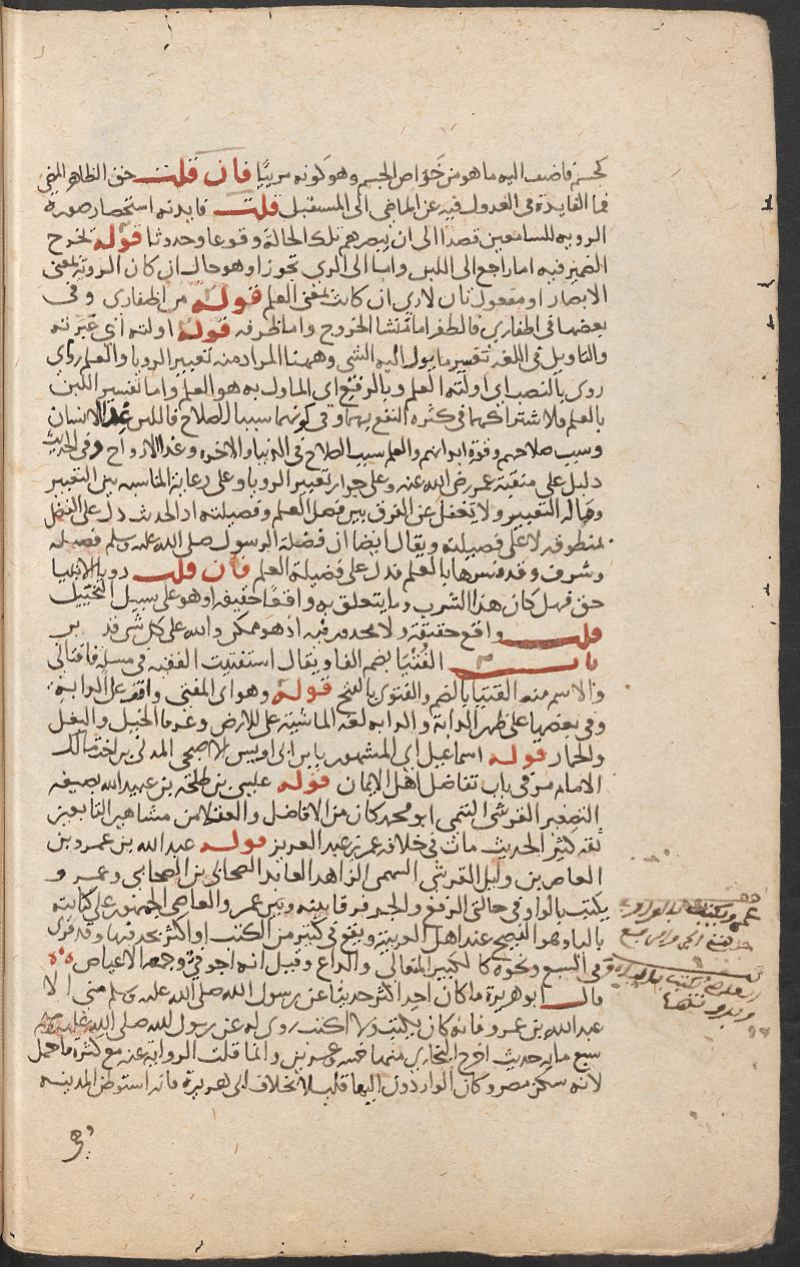 كجسم فاضيف اليه ما هو من خواص الجسم وهو كونه مرئيا فان قلت حق الظاهر المضي
فما الفايدة في العدول فيه عن الماضي الى المستقبل قلت فايدته استحضار صورة
الرويه للسامعين قصدا الى ان يبصرهم تلك الحالة وقوعا وحدوثا قوله يخرج
الضمير فيه اما راجع الى اللبن واما الى الري تجوزا وهو حال ان كان الروية بمعنى
الابصار او مفعول ثان لاري ان كانت بمعنى العلم قوله من اظفاري وفي
بعضها في اظفاري فالظفر اما منشا الخروج واما ظرفه قوله اولته اي عبرته
والتاويل في اللغه تفسير ما يول اليه الشي وههنا المراد منه تعبير الرويا والعلم روي
روي بالنصب اي اولته العلم وبالرفع اي الماول به هو العلم واما تفسير اللبن
بالعلم فلاشتراكهما في كثرة النفع بهما وفي كونهما سببا للصلاح فاللبن غذا الانسان
وسبب صلاحهم وقوة ابدانهم والعلم سبب الصلاح في الدنيا والاخره وغذا الارواح وفي الحديث
دليل على منقبة عمر رضي الله عنه وعلى جواز تعبير الرويا وعلى رعاية المناسبه بين التعبير
وماله التعبير ولا تغفل عن الفرق بين فضل العلم وفضيلته اذ الحدث دل على الفضل
بمنطوقه لا على فضيلته ويقال ايضا ان فضلة الرسول صلى الله عليه وسلم فضيله
وشرف وقد فسرها بالعلم فدل على فضيلة العلم فان قلت رويا الانبيا
حق فهل كان هذا الشرب وما يتعلق به واقعا حقيقه او هو على سبيل التخييل
قلت واقع حقيقة ولا محذور فيه اذ هو ممكن والله على كل شي قدير
باب الفتيا بضم الفا ويقال استفتيت الفقيه في مسلة فافتاني
والاسم منه الفتيا بالضم والفتوى بالفتح قوله وهو اي المفتي واقف على الدابة
وفي بعضها على ظهر الدابة والدابه لغه الماشية على الارض وعرفا الخيل والبغل
والحمار قوله اسماعيل اي المشهور بابن ابي اويس الاصبحي المدني بن اخت مالك
الامام مر في باب تفاضل اهل الايمان قوله عيسى بن طلحة بن عبيد الله بصيغه
التصغير القرشي التيمي ابو محمد كان من الافاضل والعقلا من مشاهير التابعين
ثقه كثير الحديث مات في خلافه عمر بن عبد العزيز قوله عبد الله بن عمرو بن
العاص بن وايل القرشي السهمي الزاهد العابد الصحابي بن الصحابي وعمرو
يكتب بالواو في حالتي الرفع والجر فرقا بينه وبين عمر والعاصي الجمهور على كتابته
باليا وهو الفصيح عند اهل العربية ويقع في كثير من الكتب او اكثرها بحذفها وقد قري
في السبع ونحوه كالكبير المتعالي والداع وقيل انه اجوف وجمعه الاعياص
قال ابو هريرة ما كان احد اكثر حديثا عن رسول الله صلى الله عليه وسلم مني الا
عبد الله بن عمرو فانه كان يكتب ولا اكتب روي له عن رسول الله صلى الله عليه وسلم
سبع مايه حديث اخرج البخاري منها خمسه وعشرين وانما قلت الرواية عنه مع كثرة ما حمل
لانه سكن مصر وكان الواردون اليها قليلا بخلاف ابي هريرة فانه استوطن المدينه